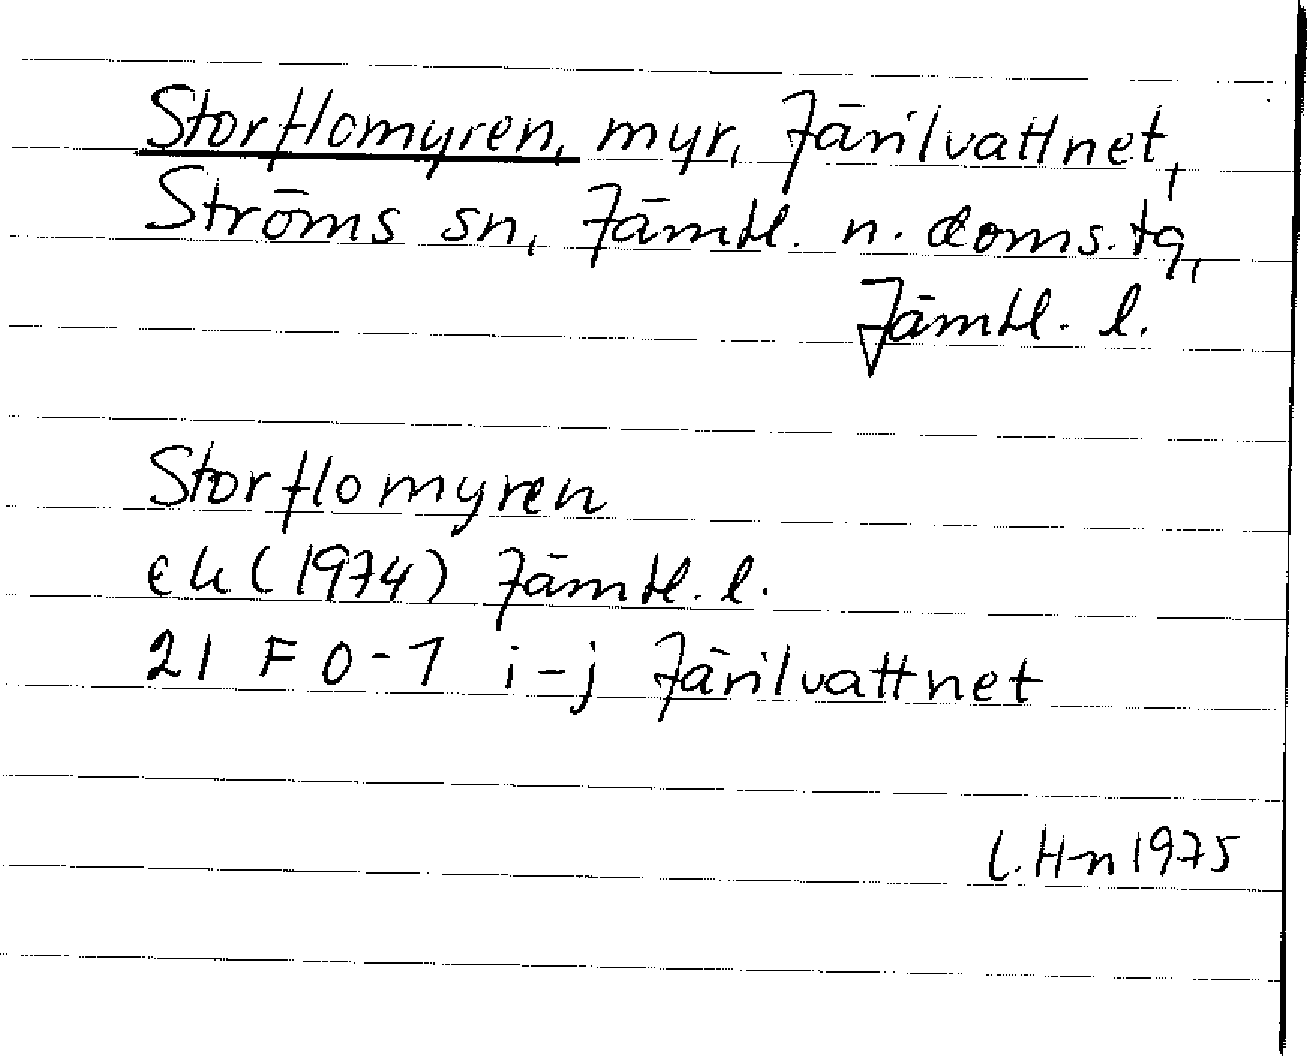 Storflomyren, myr, Järilvattnet,
Ströms sn, Jämtl. n. doms. tg,
Jämtl. l.
Storflomyren
ek (1974) Jämtl. l.
21 F 0-1 i-j Järilvattnet
L. H-n 1975